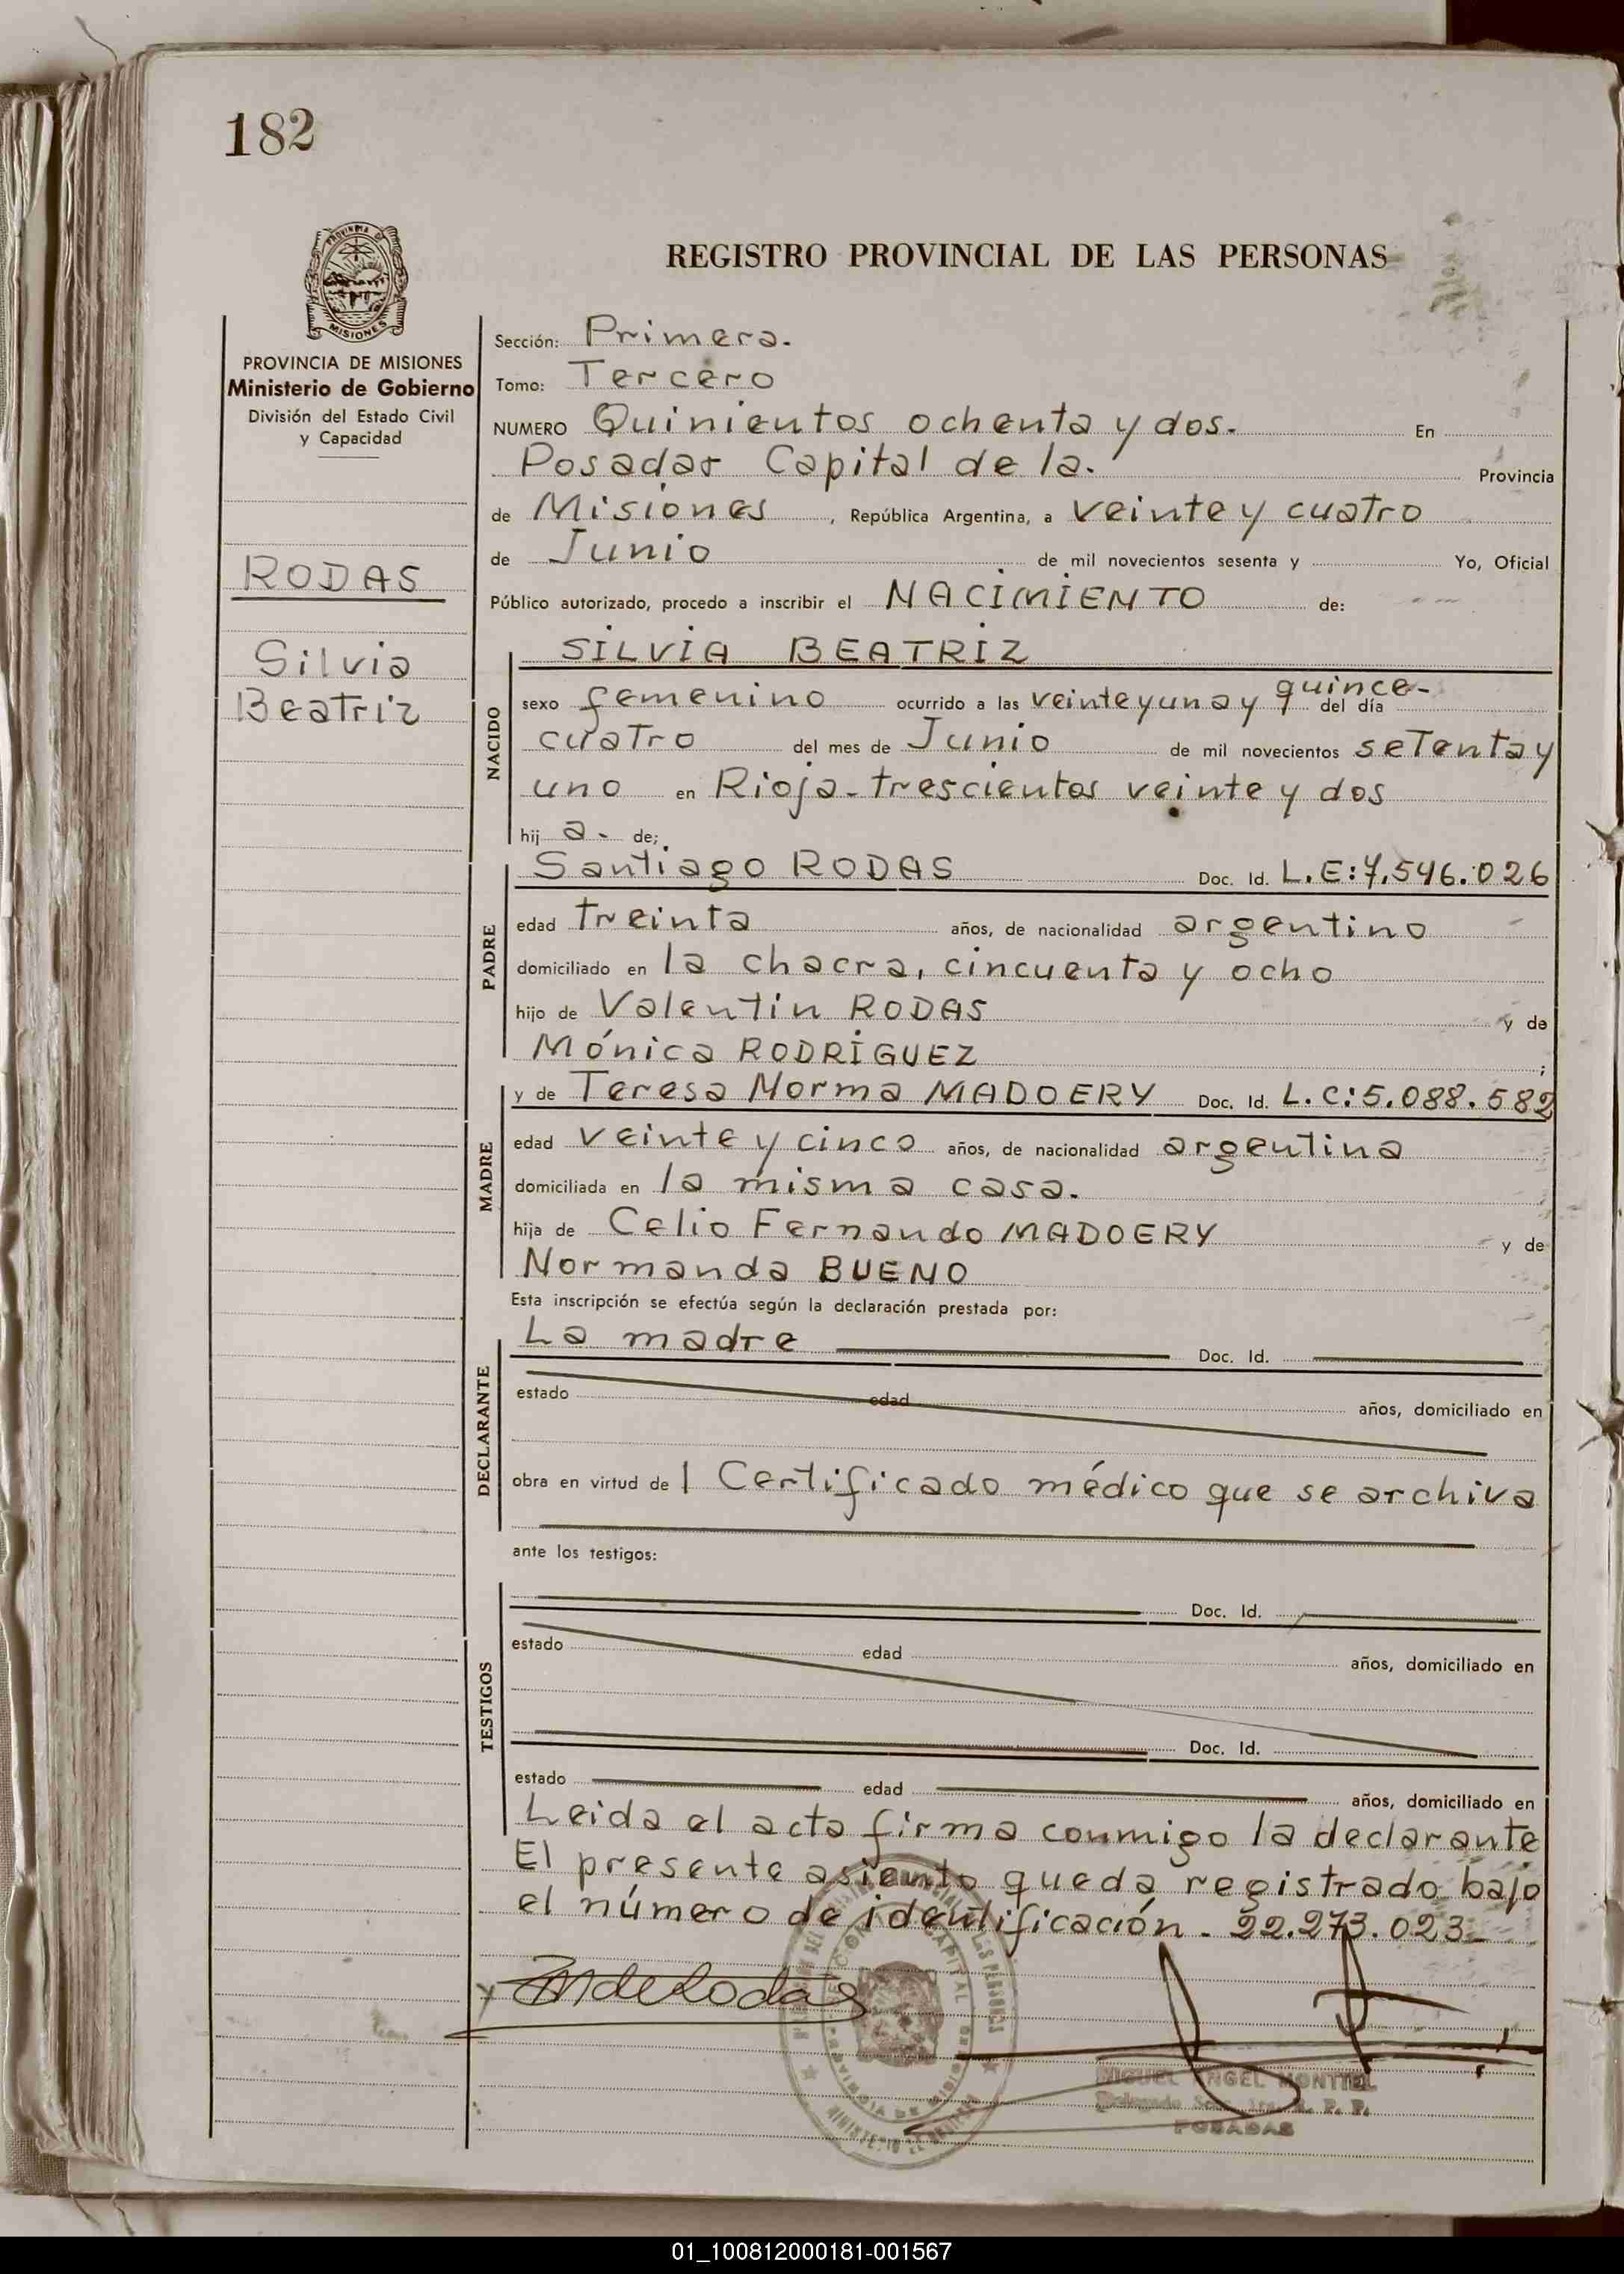 182
PROVINCIA DE MISIONES
PROVINCIA DE MISIONES
Ministerio de Gobierno
División del Estado Civil
y Capacidad
RODAS
Silvia
Beatriz
REGISTRO PROVINCIAL DE LAS PERSONAS
Sección: Primera.
Tomo: Tercero
NUMERO Quinientos ochenta y dos. En
Posadas Capital de la. Provincia
de Misiones, República Argentina, a veinte y cuatro
de Junio de mil novecientos sesenta y Yo, Oficial
Público autorizado, procedo a inscribir el NACIMIENTO de:
SILVIA BEATRIZ
NACIDO
sexo femenino ocurrido a las veinte y una y quince- del día
cuatro del mes de Junio de mil novecientos setenta y
uno en Rioja-trescientos veinte y dos
hij a. de;
PADRE
Santiago RODAS Doc. Id. L.E:7.546.026
edad treinta años, de nacionalidad argentino
domiciliado en la chacra, cincuenta y ocho
hijo de Valentin RODAS y de
Mónica RODRÍGUEZ ;
MADRE
y de Teresa Norma MADOERY Doc. Id. L.C:5.088.582
edad veinte y cinco años, de nacionalidad argentina
domiciliada en la misma casa.
hija de Celio Fernando MADOERY y de
Normanda BUENO
Esta inscripción se efectúa según la declaración prestada por:
DECLARANTE
La madre Doc. Id.
estado edad años, domiciliado en
obra en virtud de l Certificado médico que se archiva
ante los testigos:
TESTIGOS
Doc. Id.
estado edad años, domiciliado en
Doc. Id.
estado edad años, domiciliado en
Leida el acta firma conmigo la declarante
El presente asiento queda registrado bajo
el número de identificación. 22.273.023-
MIGUEL ANGEL MONTIEL
POSADAS
01_100812000181-001567